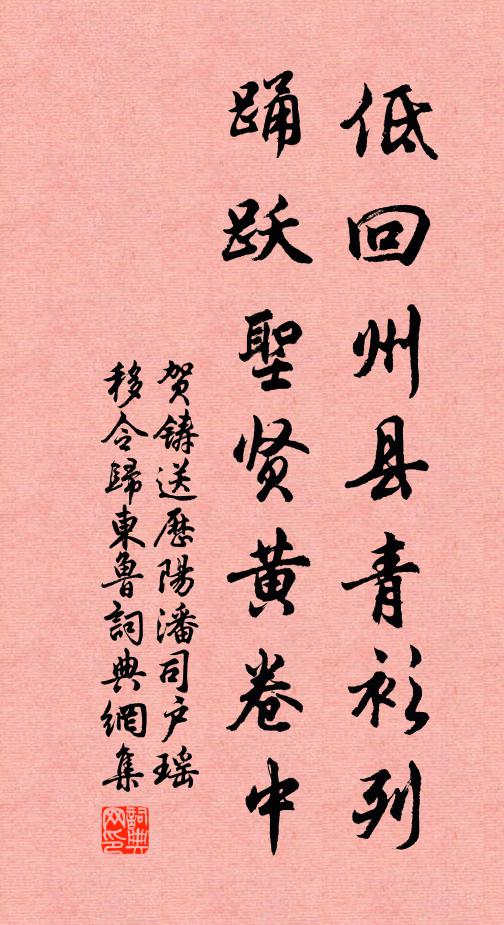 低回州县青衫列
踊跃聖贤黄卷中
贺铸送歷陽潘司户瑶
移令歸東魯詞典網集
詞典
网印